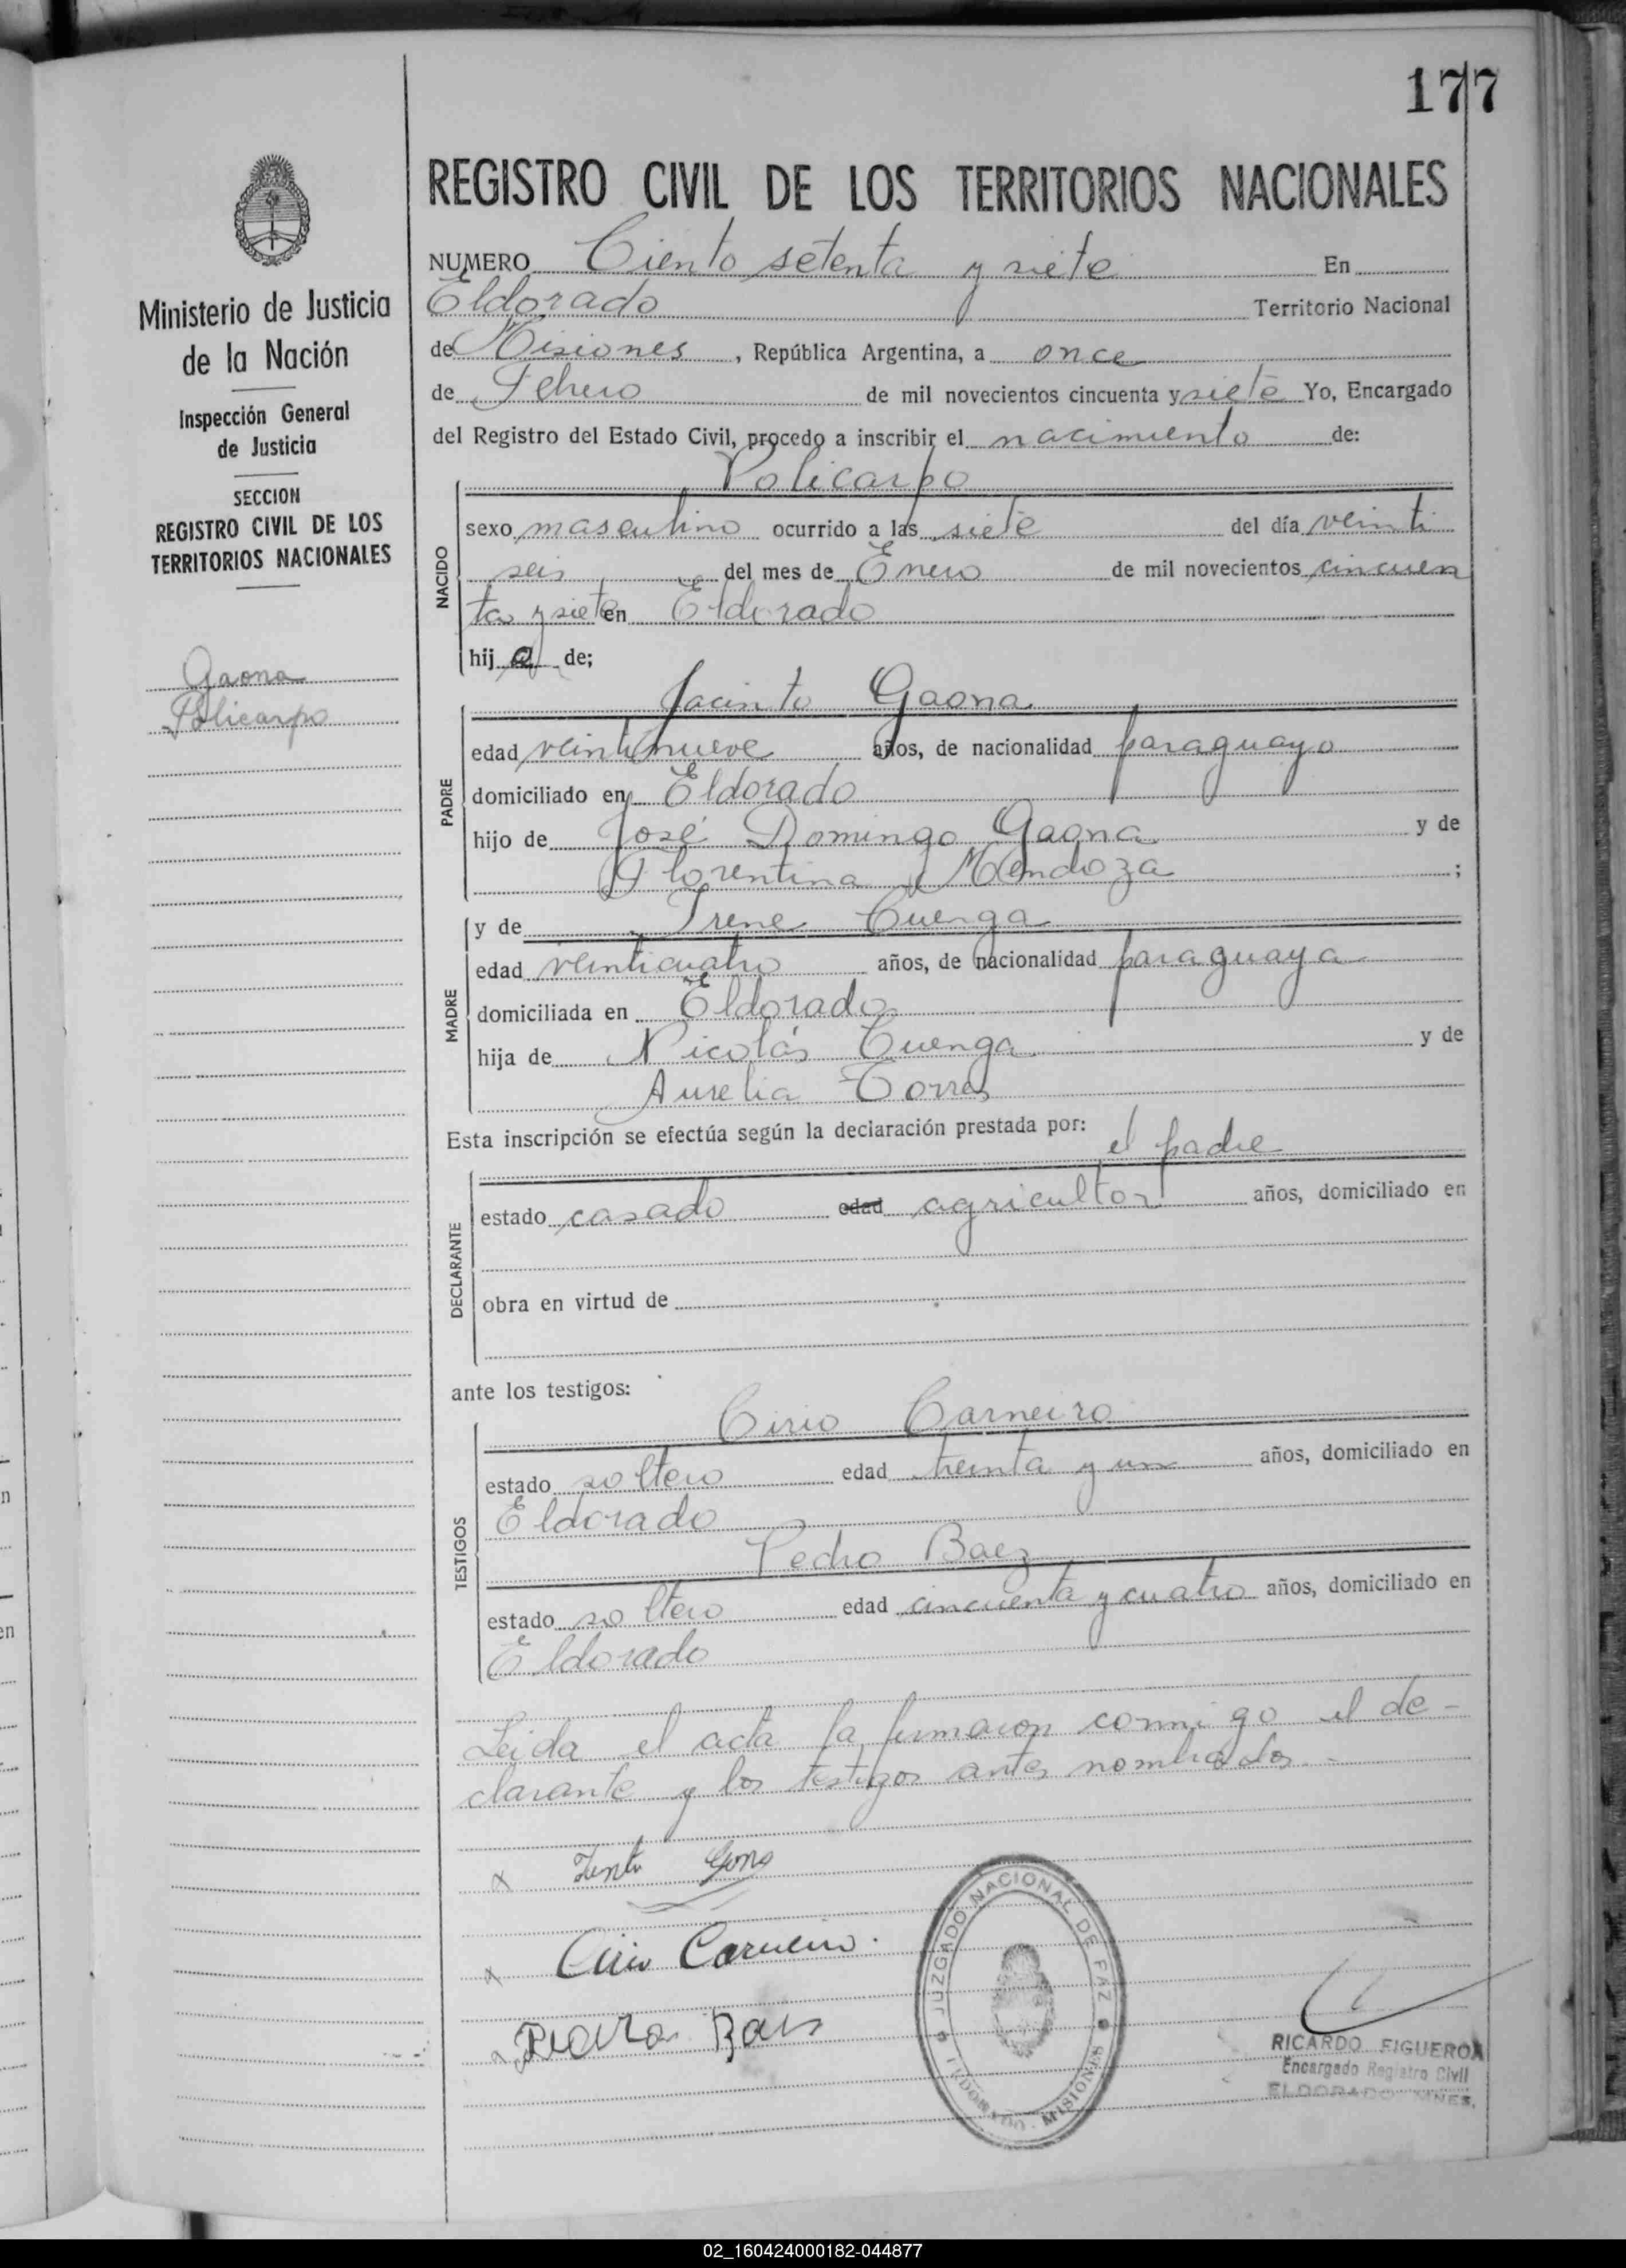 177
REGISTRO CIVIL DE LOS TERRITORIOS NACIONALES
Ministerio de Justicia
de la Nación
Inspección General
de Justicia
SECCION
REGISTRO CIVIL DE LOS
TERRITORIOS NACIONALES
Gaona
Policarpo
NUMERO Ciento setenta y siete En
Eldorado Territorio Nacional
de Misiones, República Argentina, a once
de Febrero de mil novecientos cincuenta y siete Yo, Encargado
del Registro del Estado Civil, procedo a inscribir el nacimiento de:
NACIDO
Policarpo
sexo masculino ocurrido a las siete del día veinti
seis del mes de Enero de mil novecientos cincuen
ta y siete en Eldorado
hijo de;
PADRE
Jacinto Gaona
edad veintinueve años, de nacionalidad paraguayo
domiciliado en Eldorado
hijo de José Domingo Gaona y de
Florentina Mendoza ;
MADRE
y de Irene Cuenga
edad veinticuatro años, de nacionalidad paraguaya
domiciliada en Eldorado
hija de Nicolás Cuenga y de
Aurelia Torres
Esta inscripción se efectúa según la declaración prestada por:
DECLARANTE
el padre
estado casado edad agricultor años, domiciliado en
obra en virtud de
ante los testigos:
TESTIGOS
Cirio Carneiro
estado soltero edad treinta y un años, domiciliado en
Eldorado
Pedro Baez
estado soltero edad cincuenta y cuatro años, domiciliado en
Eldorado
Leida el acta la firmaron conmigo el de-
clarante y los testigos antes nombrados.-
x
x Cirio Carneiro.
x
JUZGADO NACIONAL DE PAZ
ELDORADO - MISIONES
RICARDO FIGUEROA
Encargado Registro Civil
ELDORADO MNES.
02_160424000182-044877